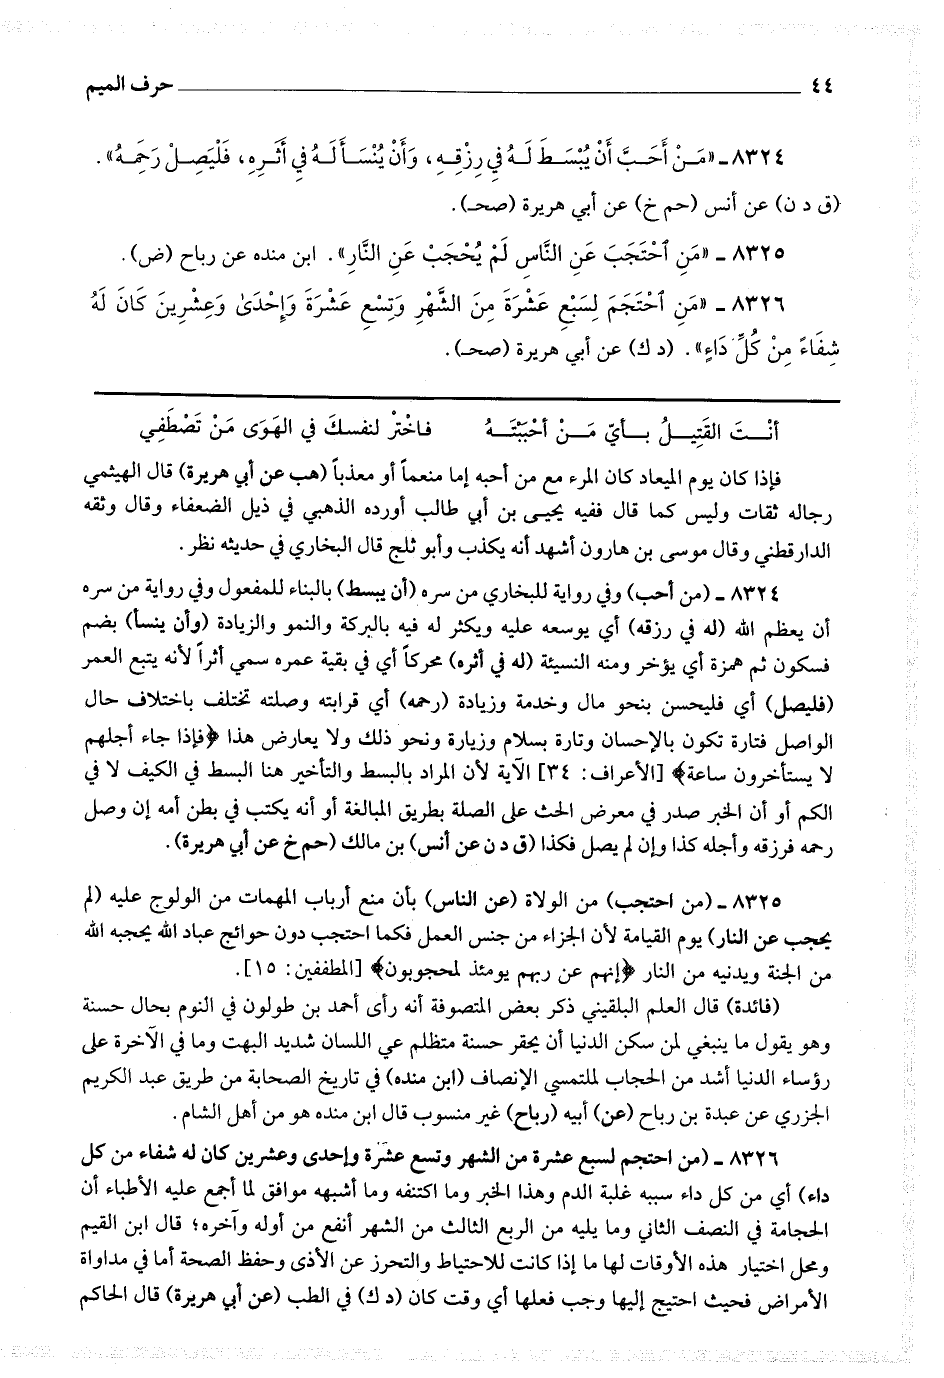 ٤٤ حرف الميم
٨٣٢٤ ـ «مَـنْ أَحَـبَّ أَنْ يُبْسَـطَ لَـهُ فِي رِزْقِـهِ، وَأَنْ يُنْسَـأَ لَـهُ فِي أَثَـرِهِ، فَلْيَصِـلْ رَحِمَـهُ».
(ق د ن) عن أنس (حم خ) عن أبي هريرة (صحـ).
٨٣٢٥ ـ «مَنِ ٱحْتَجَبَ عَنِ النَّاسِ لَمْ يُحْجَبْ عَنِ النَّارِ». ابن منده عن رباح (ض).
٨٣٢٦ ـ «مَنِ ٱحْتَجَمَ لِسَبْعِ عَشْرَةَ مِنَ الشَّهْرِ وَتِسْعِ عَشْرَةَ وَإِحْدَىٰ وَعِشْرِينَ كَانَ لَهُ
شِفَاءً مِنْ كُلِّ دَاءٍ». (د ك) عن أبي هريرة (صحـ).
أنْـتَ القَتِيـلُ بـأيِّ مَـنْ أحْبَبْتَـهُ فاخْتَرْ لنفسكَ في الهَوَى مَنْ تَصْطَفِي
فإذا كان يوم الميعاد كان المرء مع من أحبه إما منعماً أو معذباً (هب عن أبي هريرة) قال الهيثمي
رجاله ثقات وليس كما قال ففيه يحيى بن أبي طالب أورده الذهبي في ذيل الضعفاء وقال وثقه
الدارقطني وقال موسى بن هارون أشهد أنه يكذب وأبو ثلج قال البخاري في حديثه نظر.
٨٣٢٤ ـ (من أحب) وفي رواية للبخاري من سره (أن يبسط) بالبناء للمفعول وفي رواية من سره
أن يعظم الله (له في رزقه) أي يوسعه عليه ويكثر له فيه بالبركة والنمو والزيادة (وأن ينسأ) بضم
فسكون ثم همزة أي يؤخر ومنه النسيئة (له في أثره) محركاً أي في بقية عمره سمي أثراً لأنه يتبع العمر
(فليصل) أي فليحسن بنحو مال وخدمة وزيادة (رحمه) أي قرابته وصلته تختلف باختلاف حال
الواصل فتارة تكون بالإحسان وتارة بسلام وزيارة ونحو ذلك ولا يعارض هذا ﴿فإذا جاء أجلهم
لا يستأخرون ساعة﴾ [الأعراف: ٣٤] الآية لأن المراد بالبسط والتأخير هنا البسط في الكيف لا في
الكم أو أن الخبر صدر في معرض الحث على الصلة بطريق المبالغة أو أنه يكتب في بطن أمه إن وصل
رحمه فرزقه وأجله كذا وإن لم يصل فكذا (ق د ن عن أنس) بن مالك (حم خ عن أبي هريرة).
٨٣٢٥ ـ (من احتجب) من الولاة (عن الناس) بأن منع أرباب المهمات من الولوج عليه (لم
يحجب عن النار) يوم القيامة لأن الجزاء من جنس العمل فكما احتجب دون حوائج عباد الله يحجبه الله
من الجنة ويدنيه من النار ﴿إنهم عن ربهم يومئذ لمحجوبون﴾ [المطففين: ١٥].
(فائدة) قال العلم البلقيني ذكر بعض المتصوفة أنه رأى أحمد بن طولون في النوم بحال حسنة
وهو يقول ما ينبغي لمن سكن الدنيا أن يحقر حسنة متظلم عي اللسان شديد البهت وما في الآخرة على
رؤساء الدنيا أشد من الحجاب لملتمسي الإنصاف (ابن منده) في تاريخ الصحابة من طريق عبد الكريم
الجزري عن عبدة بن رباح (عن) أبيه (رباح) غير منسوب قال ابن منده هو من أهل الشام.
٨٣٢٦ ـ (من احتجم لسبع عشرة من الشهر وتسع عشرة وإحدى وعشرين كان له شفاء من كل
داء) أي من كل داء سببه غلبة الدم وهذا الخبر وما اكتنفه وما أشبهه موافق لما أجمع عليه الأطباء أن
الحجامة في النصف الثاني وما يليه من الربع الثالث من الشهر أنفع من أوله وآخره؛ قال ابن القيم
ومحل اختيار هذه الأوقات لها ما إذا كانت للاحتياط والتحرز عن الأذى وحفظ الصحة أما في مداواة
الأمراض فحيث احتيج إليها وجب فعلها أي وقت كان (د ك) في الطب (عن أبي هريرة) قال الحاكم